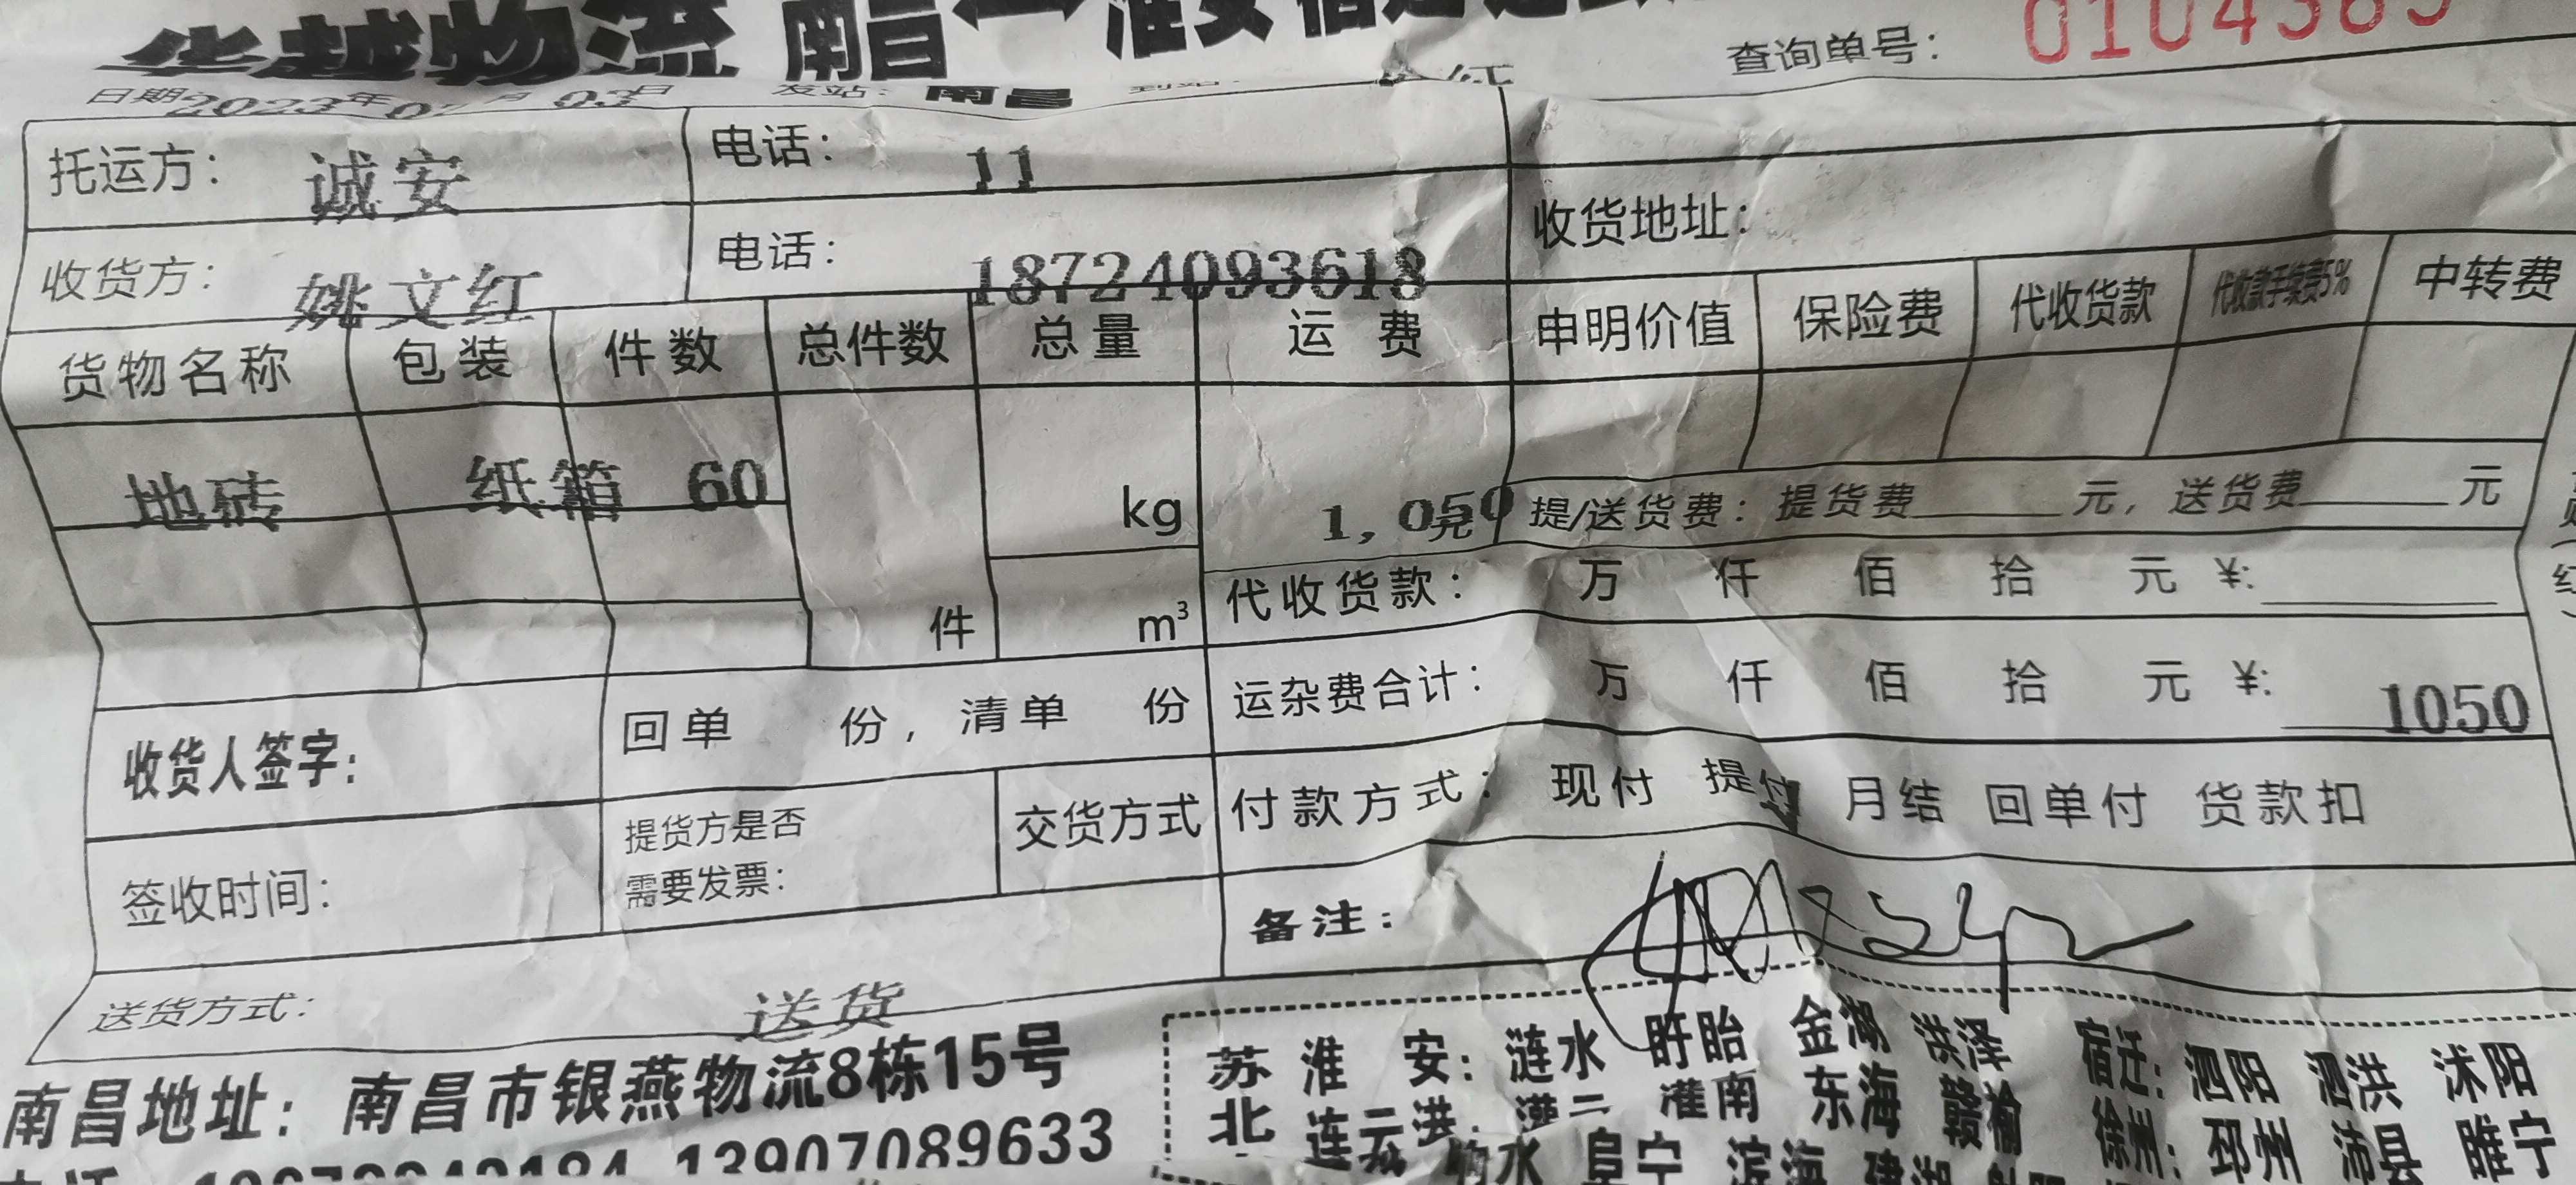 华越物流 南昌
查询单号：
日期2023年0 月03日 发站：南昌
托运方：诚安 电话：11
收货地址：
收货方：姚文红 电话：18724093618
货物名称 包装 件数 总件数 总量 运费 申明价值 保险费 代收货款 代收款手续费5% 中转费
地砖 纸箱 60 kg 1,050元 提/送货费：提货费 元，送货费 元
件 m³ 代收货款： 万 仟 佰 拾 元 ¥:
运杂费合计： 万 仟 佰 拾 元 ¥: 1050
收货人签字： 回单 份，清单 份
付款方式：现付 提付 月结 回单付 货款扣
提货方是否需要发票： 交货方式
签收时间：
备注：
送货方式： 送货
南昌地址：南昌市银燕物流8栋15号
13907089633
苏北 淮安：涟水 盱眙 金湖 洪泽 宿迁：泗阳 泗洪 沭阳
连云港 灌南 东海 赣榆 徐州：邳州 沛县 睢宁
响水 阜宁 滨海 建湖